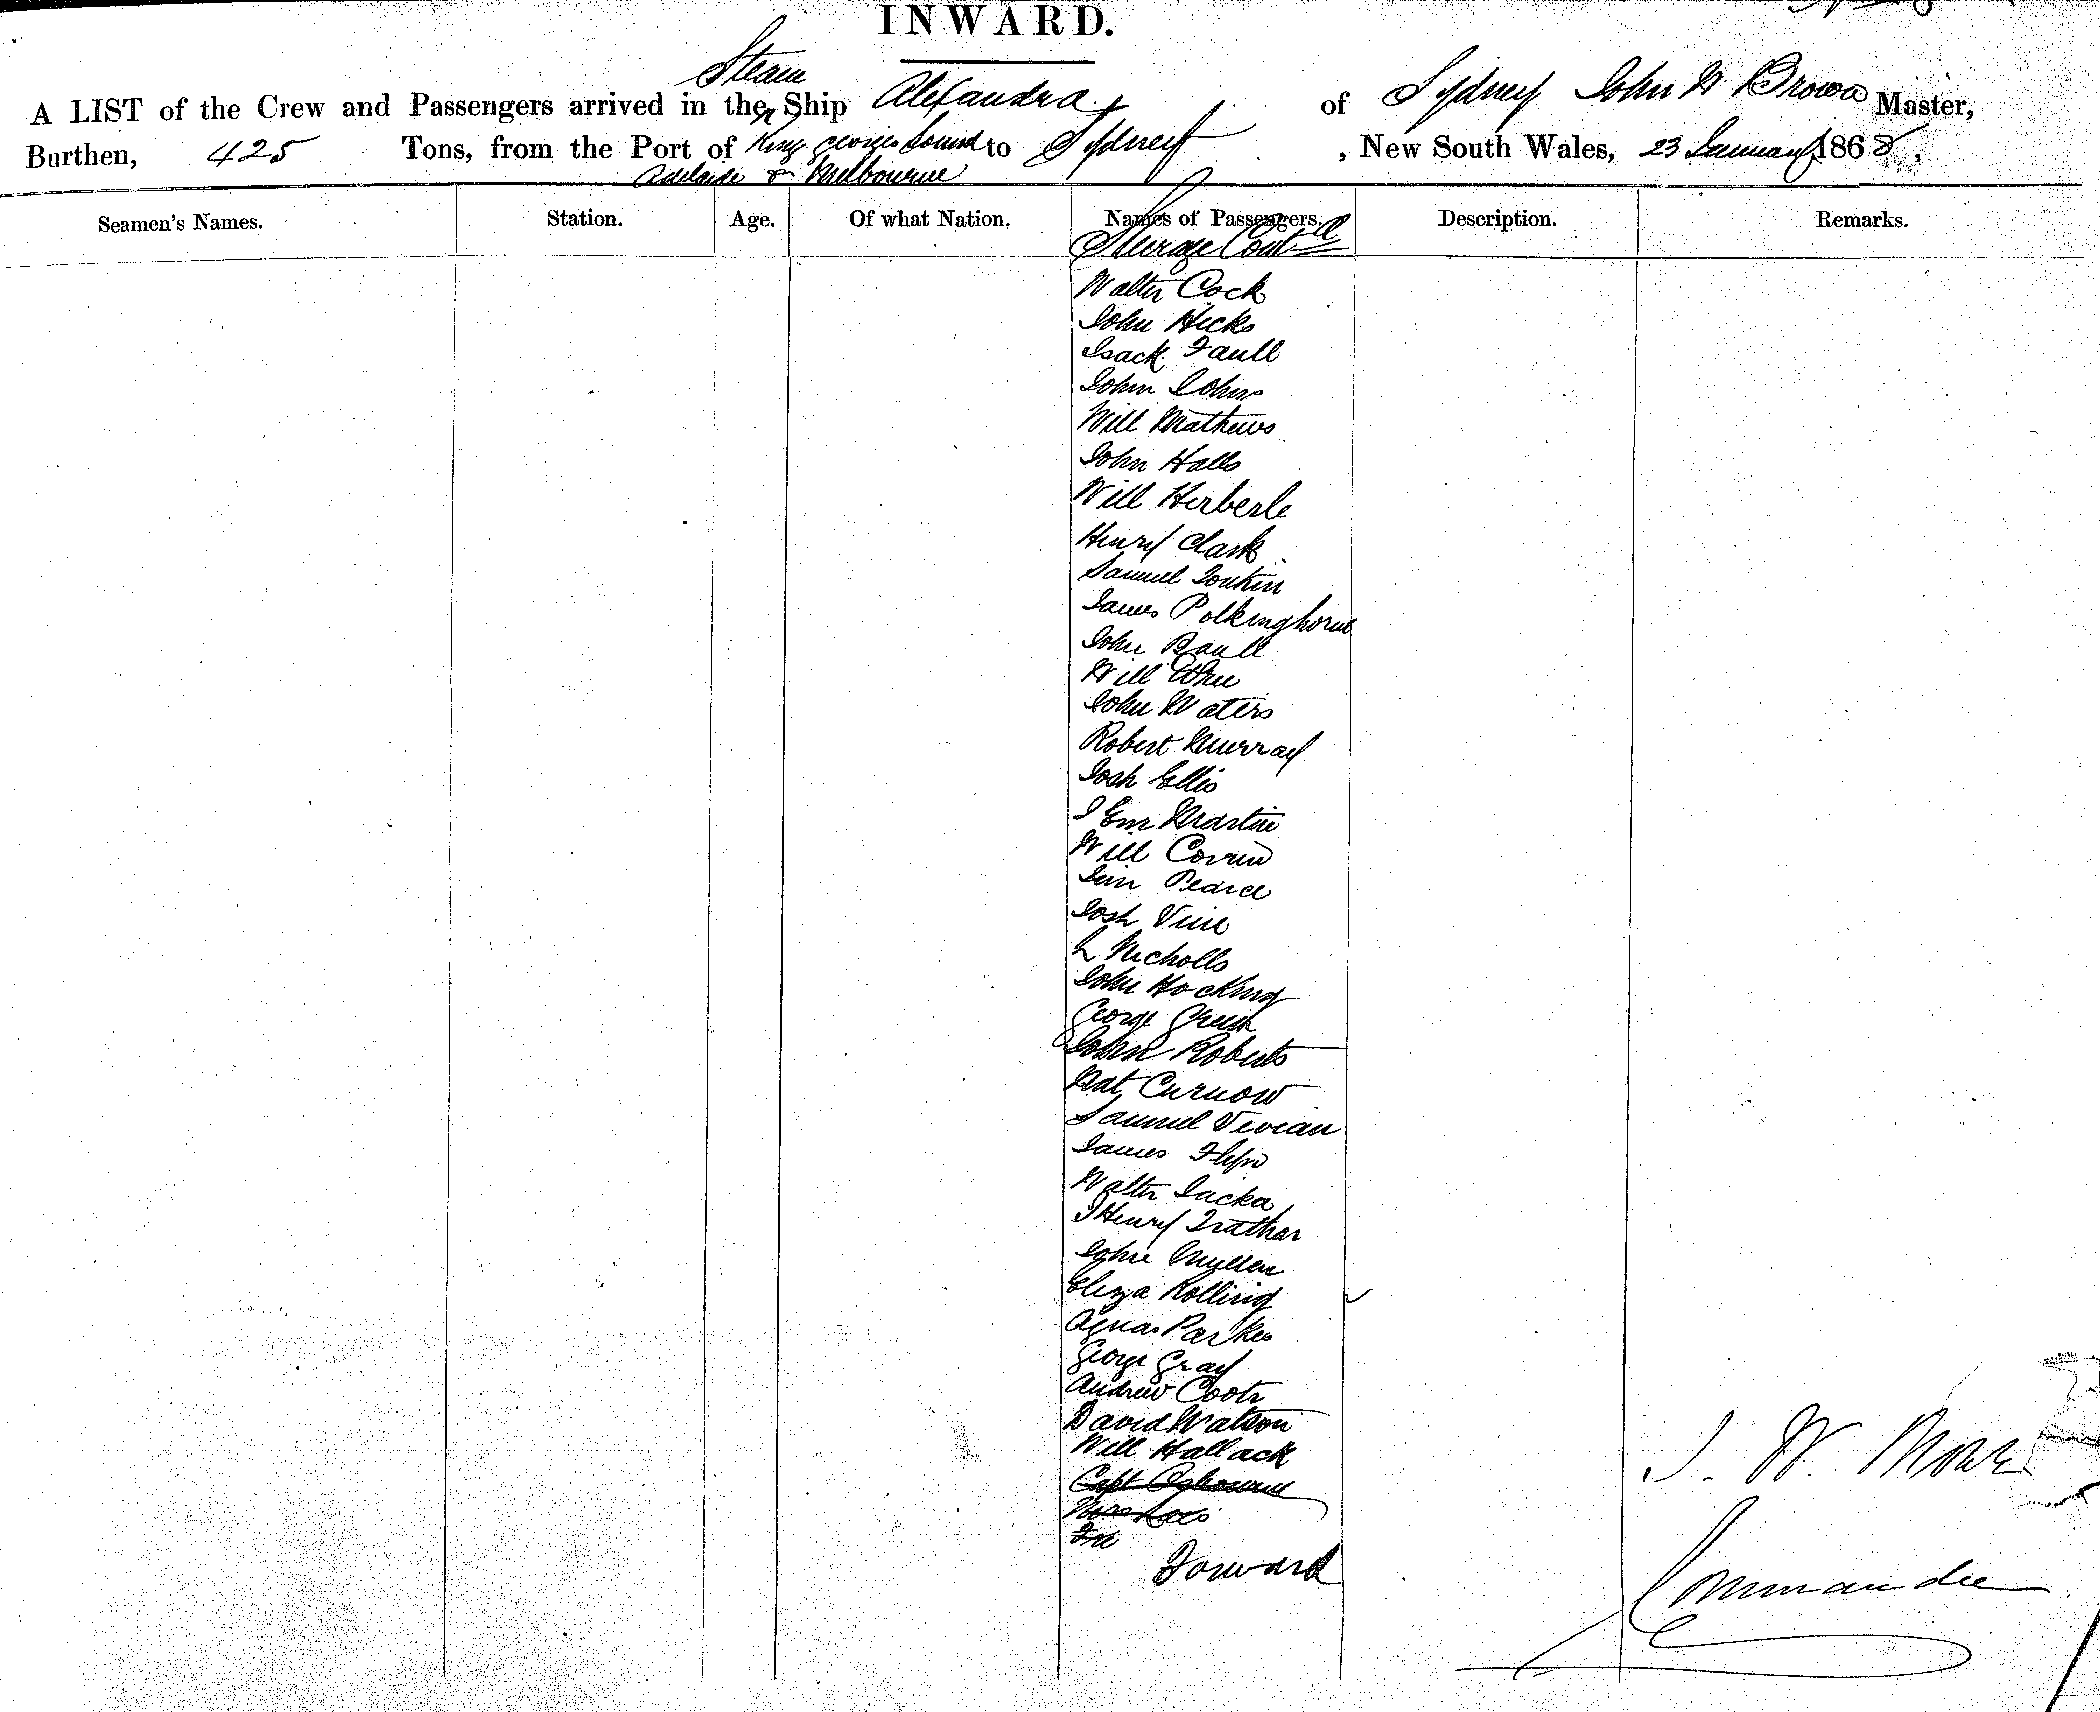 INWARD.
Steam
A LIST of the Crew and Passengers arrived in the Ship Alexandra of Sydney John W Brown Master,
Burthen, 425 Tons, from the Port of King Georges Sound to Sydney , New South Wales, 23 January 1868,
Adelaide & Melbourne
Seamen's Names. Station. Age. Of what Nation. Names of Passengers. Description. Remarks.
Steerage Contd
Walter Cock
John Hicks
Isack Faull
John Johns
Will Mathews
John Halls
Will Herberle
Henry Clark
Samuel Tonkin
James Polkinghorne
John Paull
Will
John Waters
Robert Murray
Josh Ellis
J Em Martin
Will
Jim Pearce
Josh Vine
L Nicholls
John Hocking
George Green
John Roberts
Mat Curnow
Samuel Vivian
James
Walter Jacka
J Henry Trathar
John
Eliza Rolling
Parkes
George Gray
Andrew Coots
David Watson
Will Hallack
Capt
Forward
J. W.
Commander